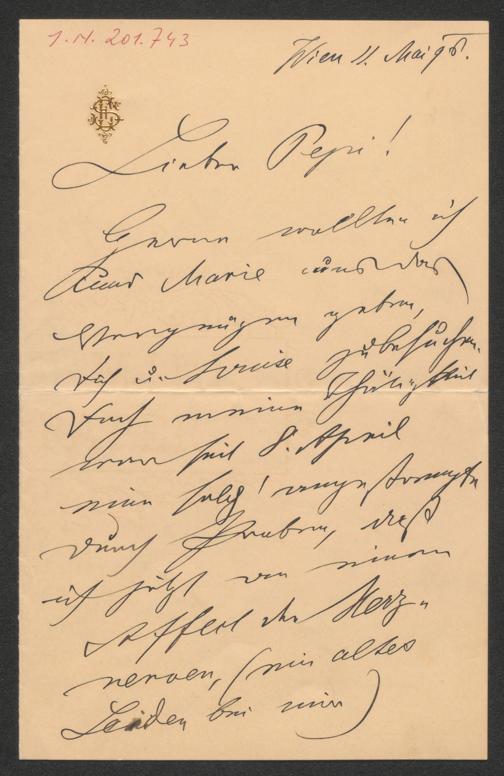 I.N. 201.743
Wien 11. Mai 96.
Lieber Pepi!
Gerne wollten ich
und Marie uns das
Vergnügen geben,
Dich u. Louise zu besuchen.
Doch meine Thätigkeit
war seit 8. April
eine solch' angestrengte
durch Proben, daß
ich jetzt an einem
Affect der Herz-
nerven, (ein altes
Leiden bei mir)